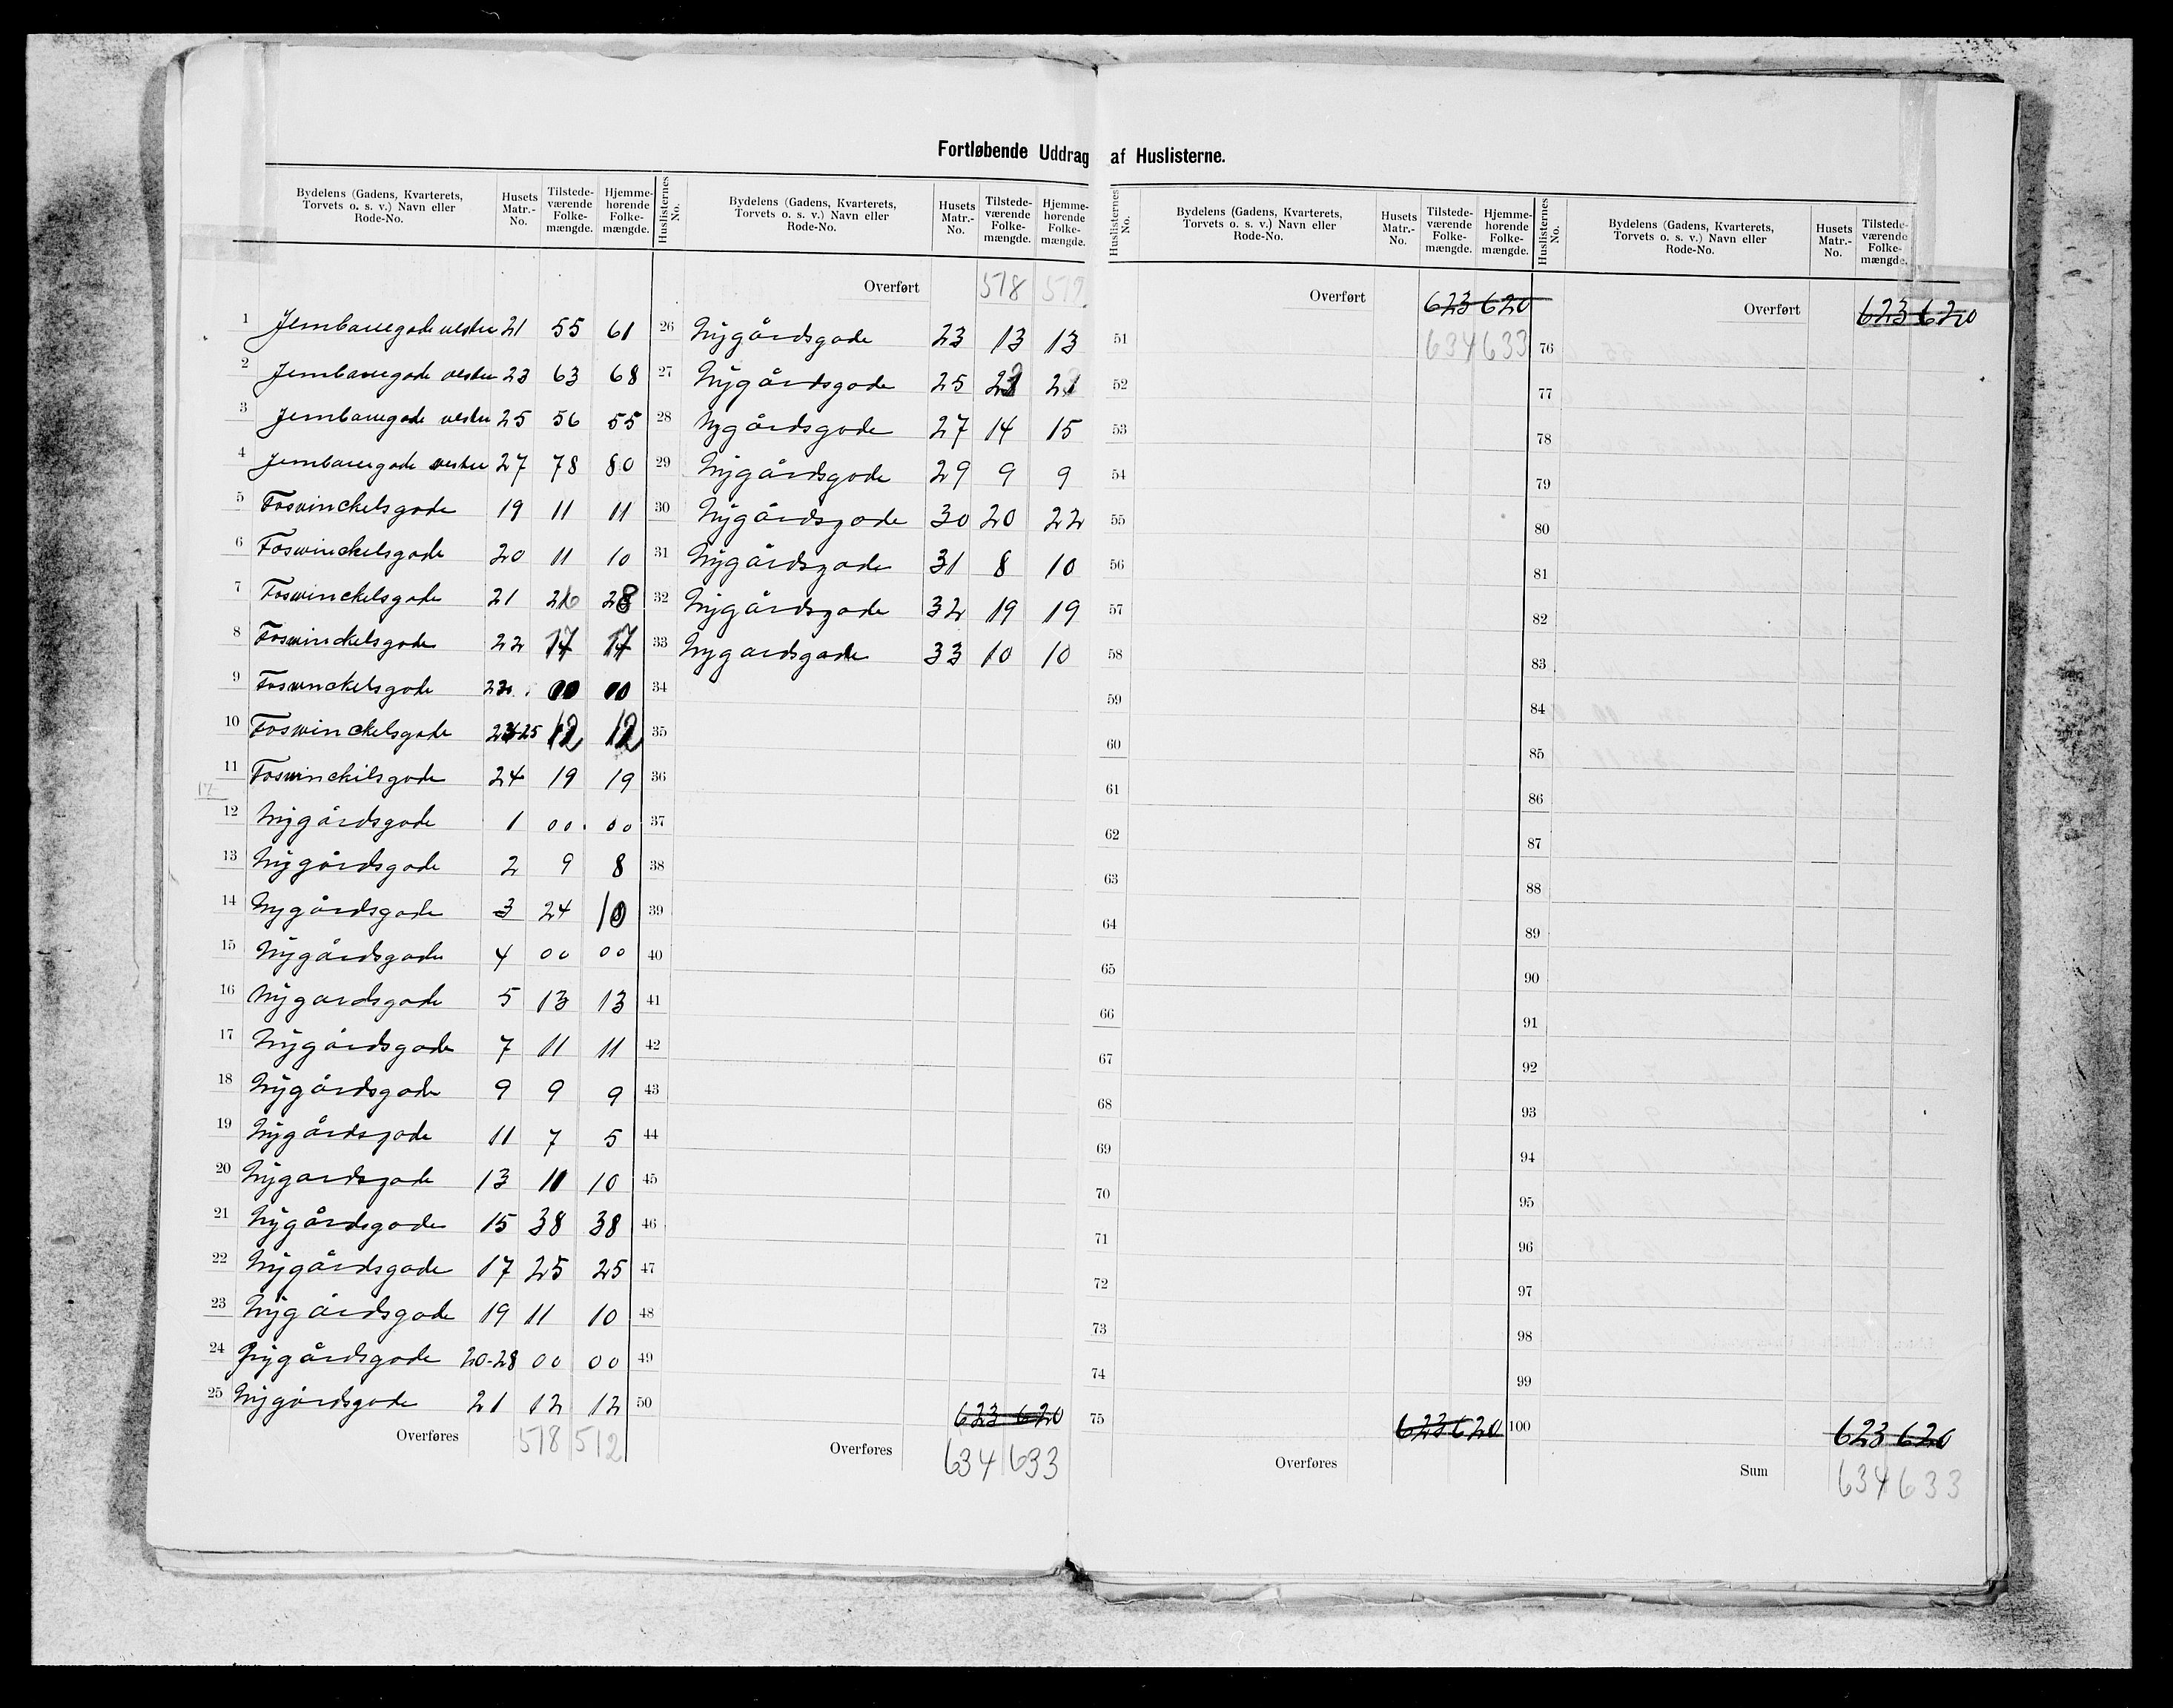 Fortløbende Uddrag af Huslisterne.
Bydelens (Gadens, Kvarterets, Torvets o. s. v.) Navn eller Rode-No. Husets Matr.-No. Tilstedeværende Folkemængde. Hjemmehørende Folkemængde.
1 Jernbanegade vestre 21 55 61
2 Jernbanegade vestre 23 63 68
3 Jernbanegade vestre 25 56 55
4 Jernbanegade vestre 27 78 80
5 Foswinckelsgade 19 11 11
6 Foswinckelsgade 20 11 10
7 Foswinckelsgade 21 26 28
8 Foswinckelsgade 22 17 17
9 Foswinckelsgade 00 00
10 Foswinckelsgade 23-25 12 12
11 Foswinckelsgade 24 19 19
12 Nygårdsgade 1 00 00
13 Nygårdsgade 2 9 8
14 Nygårdsgade 3 24 10
15 Nygårdsgade 4 00 00
16 Nygardsgade 5 13 13
17 Nygårdsgade 7 11 11
18 Nygårdsgade 9 9 9
19 Nygårdsgade 11 7 5
20 Nygardsgade 13 11 10
21 Nygårdsgade 15 38 38
22 Nygårdsgade 17 25 25
23 Nygårdsgade 19 11 10
24 Nygårdsgade 20-28 00 00
25 Nygårdsgade 21 12 12
Overføres 518 512
Huslisternes No. Bydelens (Gadens, Kvarterets, Torvets o. s. v.) Navn eller Rode-No. Husets Matr.-No. Tilstedeværende Folkemængde. Hjemmehørende Folkemængde.
Overført 518 512
26 Nygårdsgade 23 13 13
27 Nygårdsgade 25
28 Nygårdsgade 27 14 15
29 Nygårdsgade 29 9 9
30 Nygårdsgade 30 20 22
31 Nygårdsgade 31 8 10
32 Nygårdsgade 32 19 19
33 Nygardsgade 33 10 10
34
35
36
37
38
39
40
41
42
43
44
45
46
47
48
49
50
623 620
Overføres 634 633
Huslisternes No. Bydelens (Gadens, Kvarterets, Torvets o. s. v.) Navn eller Rode-No. Husets Matr.-No. Tilstedeværende Folkemængde. Hjemmehørende Folkemængde.
Overført 623 620
51 634 633
52
53
54
55
56
57
58
59
60
61
62
63
64
65
66
67
68
69
70
71
72
73
74
75 623 620
Overføres
Huslisternes No. Bydelens (Gadens, Kvarterets, Torvets o. s. v.) Navn eller Rode-No. Husets Matr.-No. Tilstedeværende Folkemængde.
Overført 623 620
76
77
78
79
80
81
82
83
84
85
86
87
88
89
90
91
92
93
94
95
96
97
98
99
100 623 620
Sum 634 633